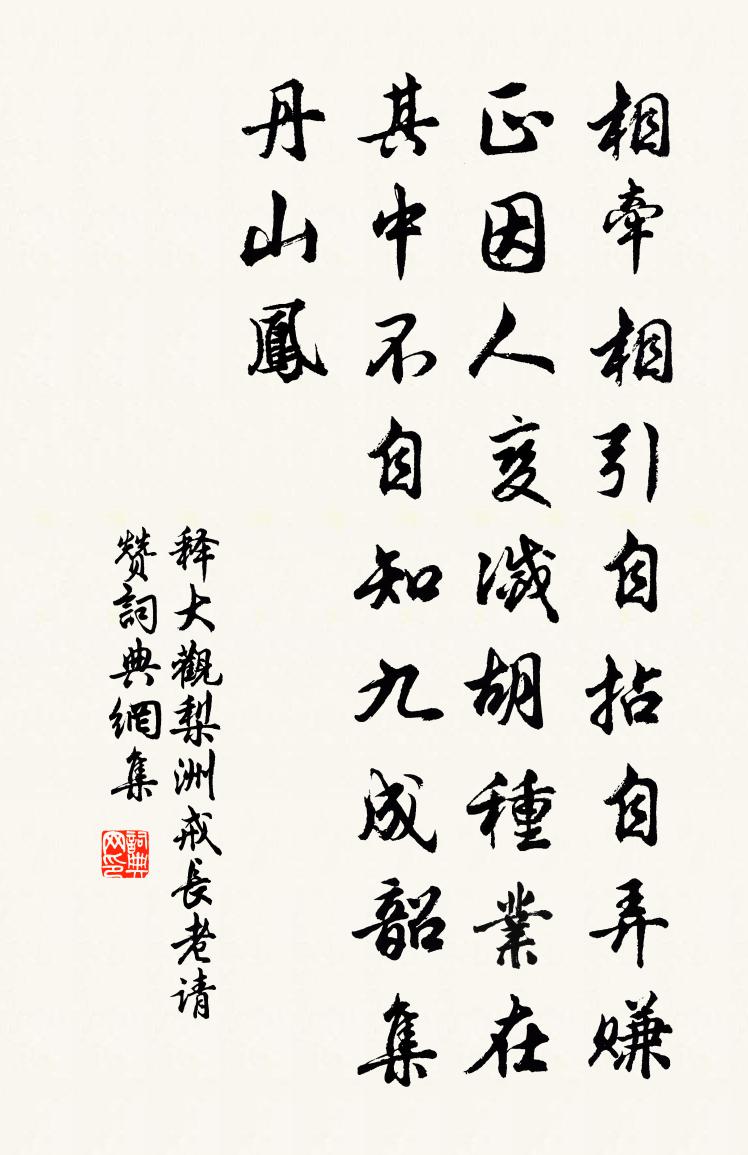 相牽相引自拈自弄賺
正因人变滅胡種業在
其中不自知九成韶集
丹山鳳
释大觀梨洲戒長老请
赞詞典網集
詞典网印